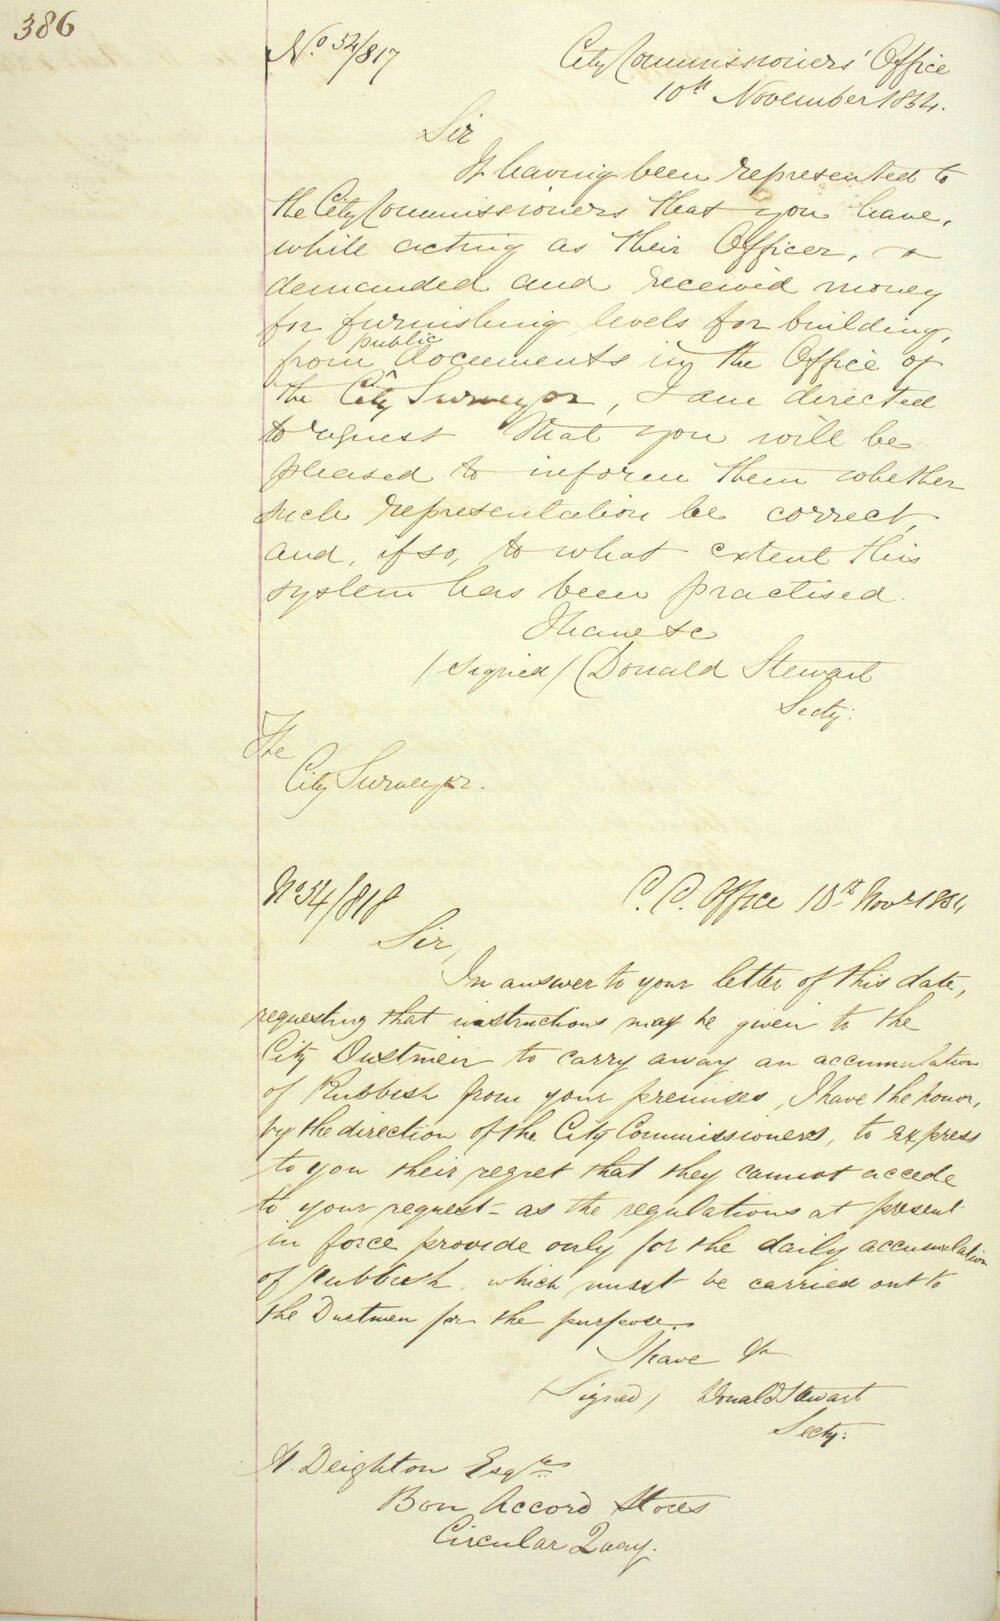 386
No 54/817
City Commissioners' Office
10th November 1854.
Sir
It having been represented to
the City Commissioners that you have,
while acting as their Officer,
demanded and received money
for furnishing levels for building,
from public documents in the Office of
the City Surveyor, I am directed
to request that you will be
pleased to inform them whether
such representation be correct,
and, if so, to what extent this
system has been practised.
I have &c
(signed) Donald Stewart
Secty.
The
City Surveyor.
No 54/818
C. C. Office 10th Novr 1854
Sir,
In answer to your letter of this date,
requesting that instructions may be given to the
City Dustmen to carry away an accumulation
of Rubbish from your premises, I have the honor,
by the direction of the City Commissioners, to express
to you their regret that they cannot accede
to your request - as the regulations at present
in force provide only for the daily accumulation
of Rubbish, which must be carried out to
the Dustmen for the purpose.
I have &c
(Signed) Donald Stewart
Secty:
Deighton Esqre
Bon Accord Stores
Circular Quay.